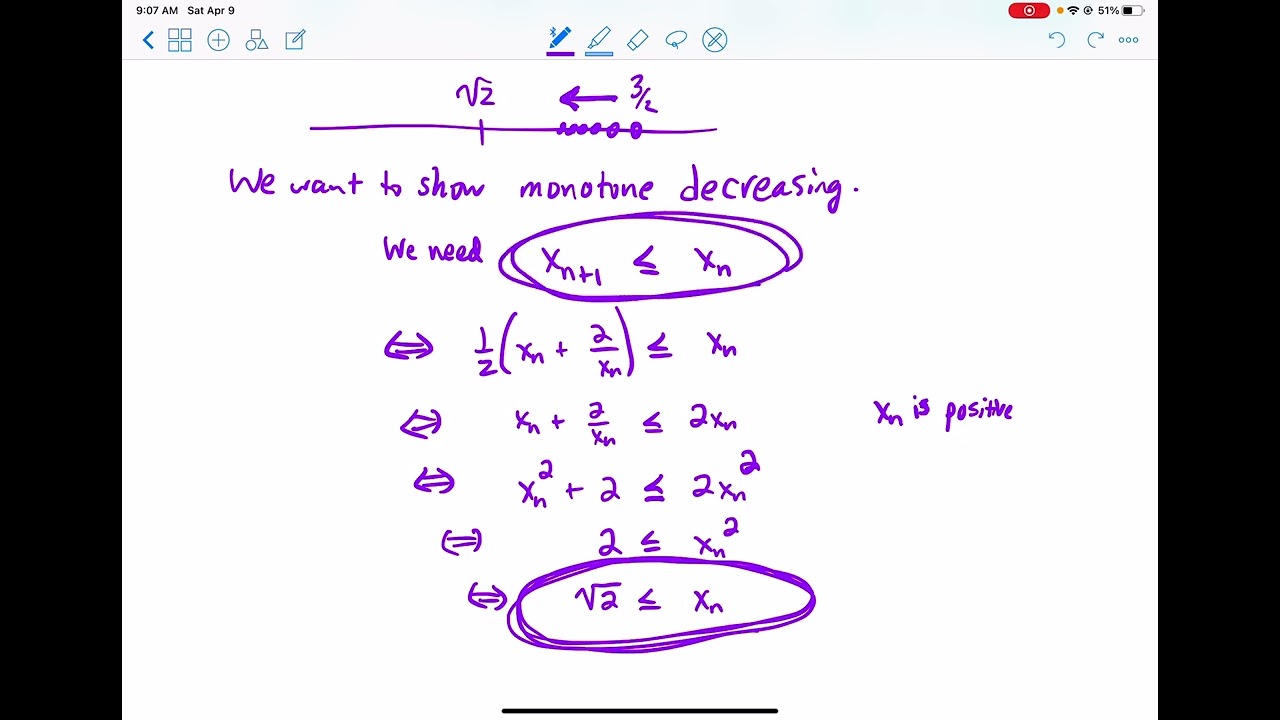 9:07 AM Sat Apr 9 51%
√2 ← 3/2
We want to show monotone decreasing.
We need xₙ₊₁ ≤ xₙ
⇔ 1/2(xₙ + 2/xₙ) ≤ xₙ
⇔ xₙ + 2/xₙ ≤ 2xₙ xₙ is positive
⇔ xₙ² + 2 ≤ 2xₙ²
⇔ 2 ≤ xₙ²
⇔ √2 ≤ xₙ